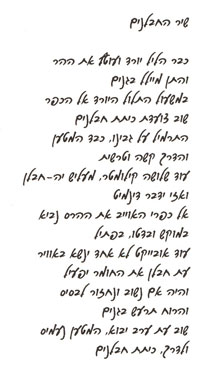 שיר החבלנים
כבר הליל יורד ועוטף את ההר
והתן מיילל בגנים
במשעול התלול היורד אל הכפר
שוב צועדת כיתת חבלנים
התרמיל על גבינו, כבד המטען
והדרך קשה וטרשית
עוד שלושה קילומטר, מעליש יה-חבלן
ואזי ידבר דינמיט
אל כפרי האוייב את ההרס נביא
במוקש ובדטו, בפתיל
עוד אובייקט לא אחד ינשא באוויר
עת חבלן את החומר יפעיל
והיה אם נשוב ונחזור לבסיס
והרוח תרעש בגנים
שוב עת ערב יבוא, המטען נעמיס
ולדרך, כיתת חבלנים